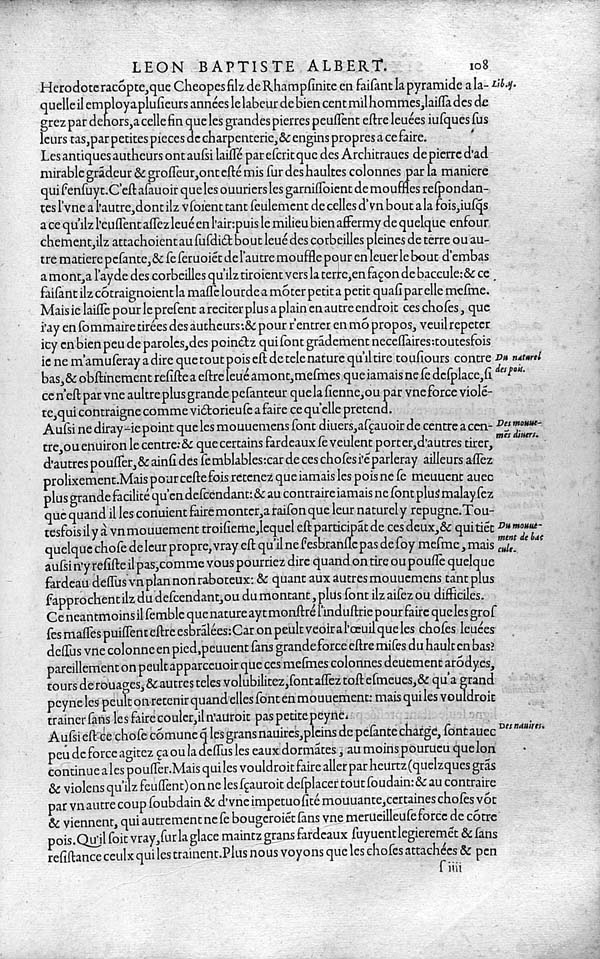 LEON BAPTISTE ALBERT. 108
Herodote racõpte, que Cheopes filz de Rhampsinite en faiſant la pyramide a la-
Lib.ij.
quelle il employa pluſieurs années le labeur de bien cent mil hommes, laiſſa des de
grez par dehors, a celle fin que les grandes pierres peuſſent eſtre leuées iuſques ſus
leurs tas, par petites pieces de charpenterie, & engins propres a ce faire.
Les antiques autheurs ont auſsi laiſſé par eſcrit que des Architraues de pierre d'ad
mirable grãdeur & groſſeur, ont eſté mis ſur des haultes colonnes par la maniere
qui ſ'enſuyt. C'eſt aſauoir que les ouuriers les garniſſoient de mouffles reſpondan-
tes l'vne a l'autre, dont ilz vſoient tant ſeulement de celles d'vn bout a la fois, iuſq̃s
a ce qu'ilz l'euſſent aſſez leué en l'air: puis le milieu bien affermy de quelque enfour
chement, ilz attachoient au ſuſdict bout leué des corbeilles pleines de terre ou au-
tre matiere peſante, & ſe ſeruoiẽt de l'autre mouffle pour en leuer le bout d'embas
a mont, a l'ayde des corbeilles qu'ilz tiroient vers la terre, en façon de baccule: & ce
faiſant ilz cõtraignoient la maſſe lourde a mõter petit a petit quaſi par elle meſme.
Mais ie laiſſe pour le preſent a reciter plus a plain en autre endroit ces choſes, que
i'ay en ſommaire tirées des autheurs: & pour r'entrer en mõ propos, veuil repeter
icy en bien peu de paroles, des poinctz qui ſont grãdement neceſſaires: toutesfois
ie ne m'amuſeray a dire que tout pois eſt de tele nature qu'il tire touſiours contre
Du naturel
des pois.
bas, & obſtinement reſiſte a eſtre leué amont, meſmes que iamais ne ſe deſplace, ſi
ce n'eſt par vne aultre plus grande peſanteur que la ſienne, ou par vne force violẽ-
te, qui contraigne comme victorieuſe a faire ce qu'elle pretend.
Auſsi ne diray-ie point que les mouuemens ſont diuers, aſçauoir de centre a cen-
Des mouue-
mẽs diuers.
tre, ou enuiron le centre: & que certains fardeaux ſe veulent porter, d'autres tirer,
d'autres pouſſer, & ainſi des ſemblables: car de ces choſes i'ẽ parleray ailleurs aſſez
prolixement. Mais pour ceſte fois retenez que iamais les pois ne ſe meuuent auec
plus grande facilité qu'en deſcendant: & au contraire iamais ne ſont plus malayſez
que quand il les conuient faire monter, a raiſon que leur naturel y repugne. Tou-
tesfois il y à vn mouuement troiſieme, lequel eſt participãt de ces deux, & qui tiẽt
Du mouue-
ment de bac
cule.
quelque choſe de leur propre, vray eſt qu'il ne ſ'esbranſle pas de ſoy meſme, mais
auſsi n'y reſiſte il pas, comme vous pourriez dire quand on tire ou pouſſe quelque
fardeau deſſus vn plan non raboteux: & quant aux autres mouuemens tant plus
ſ'approchent ilz du deſcendant, ou du montant, plus ſont ilz aiſez ou difficiles.
Ce neantmoins il ſemble que nature ayt monſtré l'induſtrie pour faire que les groſ
ſes maſſes puiſſent eſtre esbrãlées: Car on peult veoir a l'œuil que les choſes leuées
deſſus vne colonne en pied, peuuent ſans grande force eſtre miſes du hault en bas:
pareillement on peult apparceuoir que ces meſmes colonnes deuement arõdyes,
tours de rouages, & autres teles volubilitez, ſont aſſez toſt eſmeues, & qu'a grand
peyne les peult on retenir quand elles ſont en mouuement: mais qui les vouldroit
trainer ſans les faire couler, il n'auroit pas petite peyne.
Auſsi eſt ce choſe cõmune q̃ les grans nauires, pleins de peſante charge, ſont auec
Des nauires.
peu de force agitez ça ou la deſſus les eaux dormãtes, au moins pourueu que lon
continue a les pouſſer. Mais qui les vouldroit faire aller par heurtz (quelzques grãs
& violens qu'ilz feuſſent) on ne les ſçauroit deſplacer tout ſoudain: & au contraire
par vn autre coup ſoubdain & d'vne impetuoſité mouuante, certaines choſes võt
& viennent, qui autrement ne ſe bougeroiẽt ſans vne merueilleuſe force de cõtre
pois. Qu'il ſoit vray, ſur la glace maintz grans fardeaux ſuyuent legieremẽt & ſans
reſiſtance ceulx qui les trainent. Plus nous voyons que les choſes attachées & pen
ſ iiii